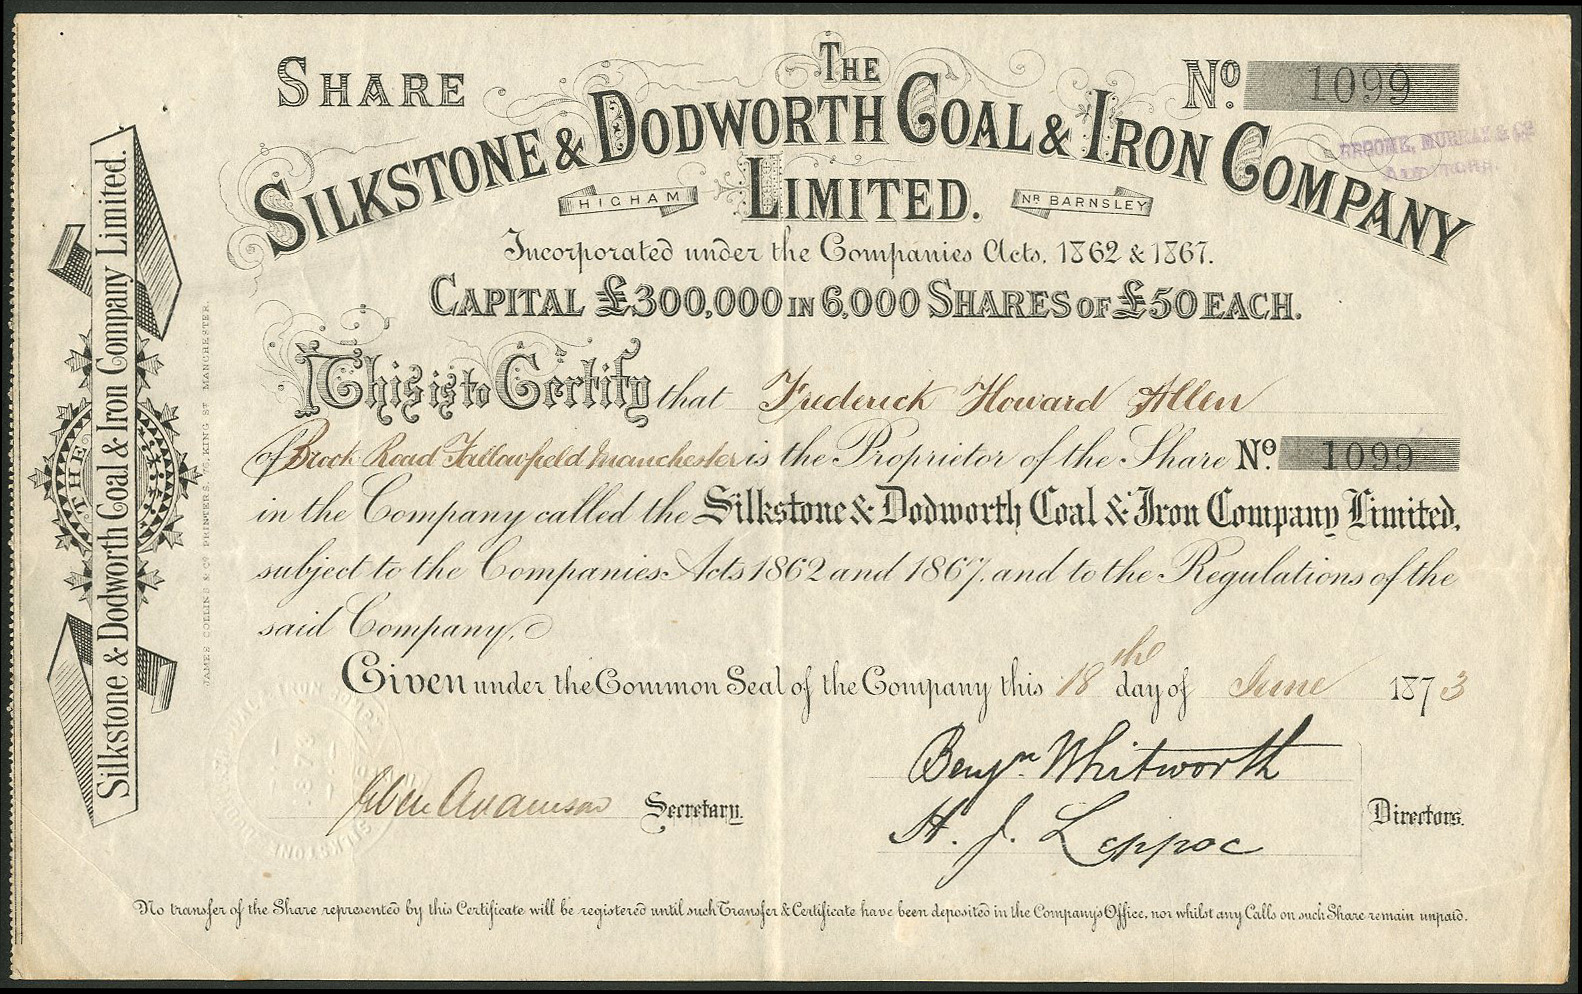 SHARE
THE
No. 1099
SILKSTONE & DODWORTH COAL & IRON COMPANY
HIGHAM LIMITED. NR BARNSLEY
BROOME, MURRAY & CO
Incorporated under the Companies Acts, 1862 & 1867.
CAPITAL £300,000 IN 6,000 SHARES OF £50 EACH.
This is to Certify that Frederick Howard Allen
of Brook Road Fallowfield Manchester is the Proprietor of the Share No. 1099
in the Company called the Silkstone & Dodworth Coal & Iron Company Limited,
subject to the Companies Acts 1862 and 1867, and to the Regulations of the
said Company.
Given under the Common Seal of the Company this 18th day of June 1873
Benjn. Whitworth
Adamson Secretary.
H. J. Leppoc
Directors.
No transfer of the Share represented by this Certificate will be registered until such Transfer & Certificate have been deposited in the Company's Office, nor whilst any Calls on such Share remain unpaid.
THE
Silkstone & Dodworth Coal & Iron Company Limited.
JAMES COLLINS & CO PRINTERS, KING ST MANCHESTER.